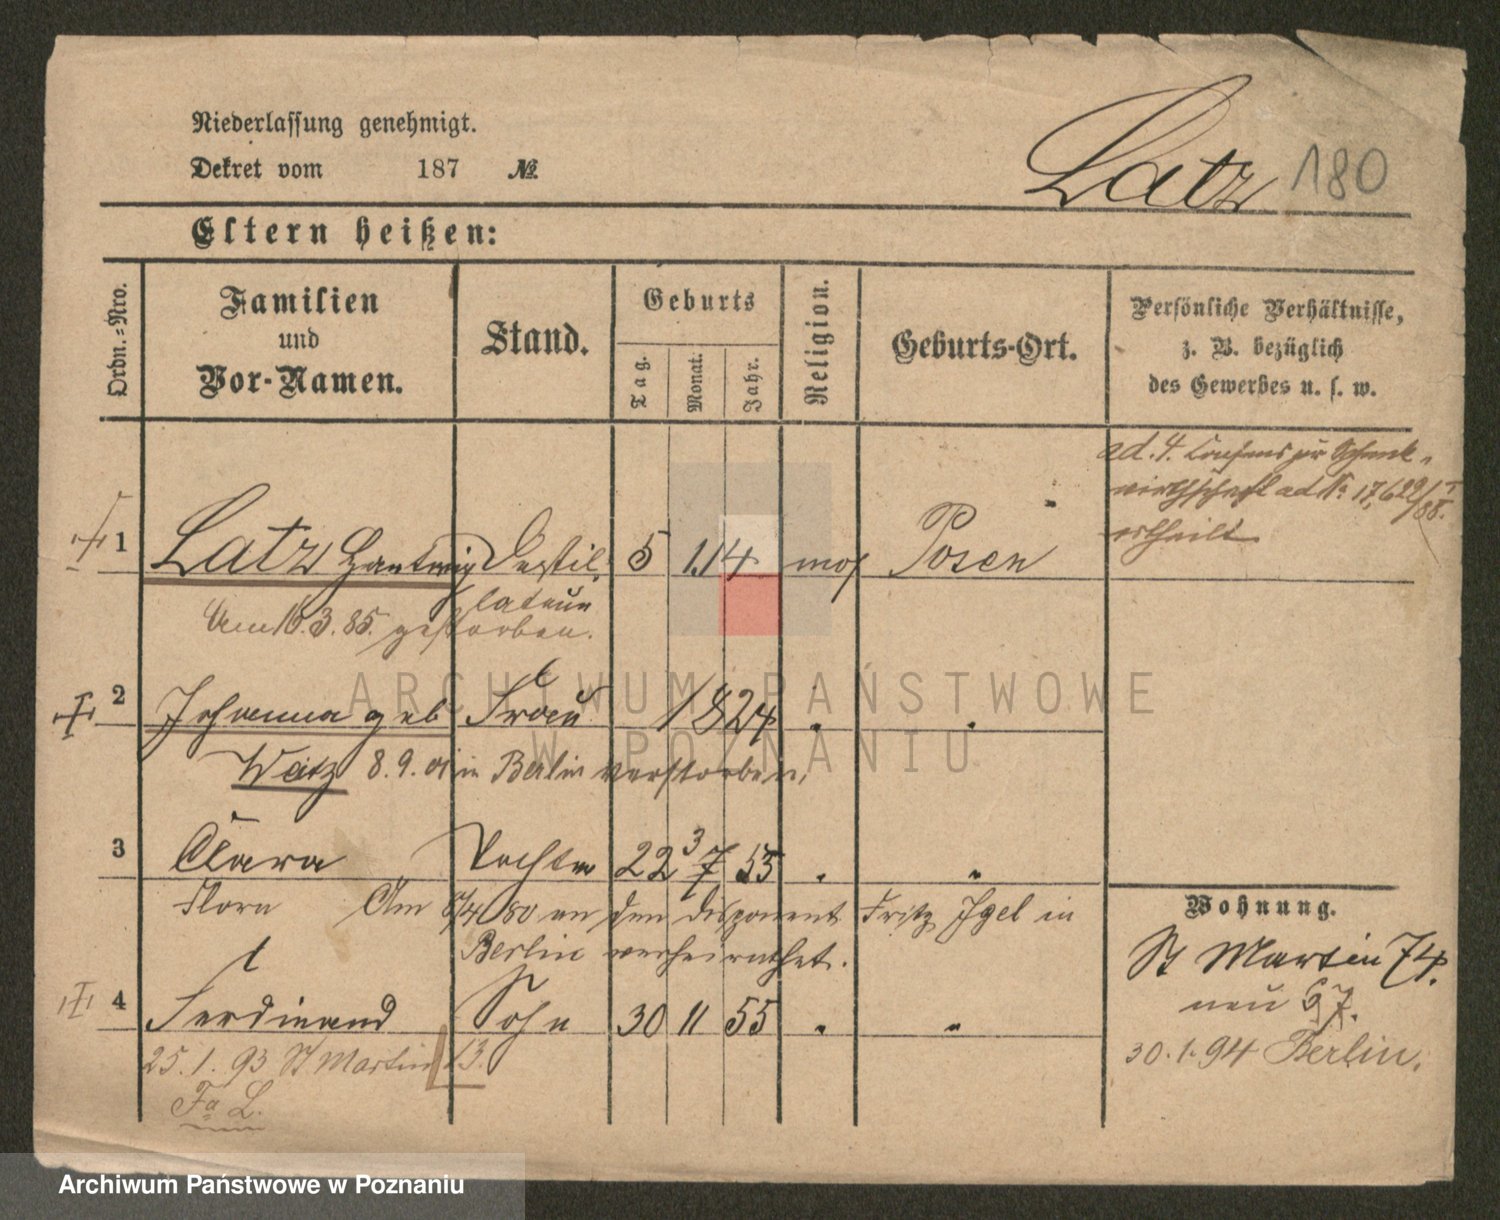 Niederlassung genehmigt.
Dekret vom 187 №
Latz 180
Eltern heißen:
Ordn.-Nro.
Familien und Vor-Namen.
Stand.
Geburts
Tag.
Monat.
Jahr.
Religion.
Geburts-Ort.
Persönliche Verhältnisse,
z. B. bezüglich
des Gewerbes u. s. w.
ad. 4. Consens zur Schank-
wirthschaft ad No 17,622/88.
ertheilt
1 Latz Hartwig Destil- 5 1. 14 mos Posen
lateur
Am 16.3.85. gestorben.
2 Johanna geb Frau 1824 " "
Watz 8.9.01 in Berlin verstorben.
3 Clara Tochter 22 3/7 55 " "
Flora Am /4 80 an den Disponent Fritz Igel in
Berlin verheirathet.
4 Ferdinand Sohn 30 11 55 " "
25.1.93 St Martin 13.
Fa L.
Wohnung.
St Martin 74.
neu 67.
30.1.94 Berlin.
ARCHIWUM PAŃSTWOWE
W POZNANIU
Archiwum Państwowe w Poznaniu